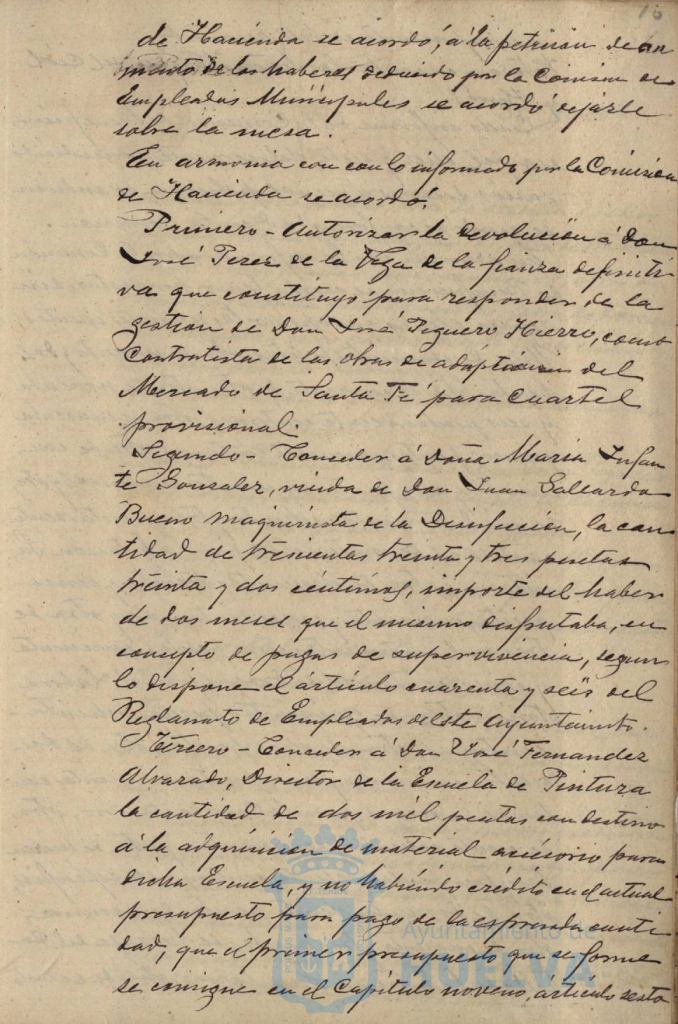 16
de Hacienda se acordó, á la petición de au
mento de los haberes deducido por la Comisión de
Empleados Municipales se acordó dejarle
sobre la mesa.
En armonia con con lo informado por la Comisión
de Hacienda se acordó:
Primero - Autorizar la devolución á Don
José Perez de la Vega de la fianza definiti
va que constituyó para responder de la
gestión de Don José Peguero Hierro, como
Contratista de las obras de adaptación del
Mercado de Santa Fé para Cuartel
provisional.
Segundo - Conceder á Doña Maria Infan
te Gonzalez, viuda de Don Juan Gallardo
Bueno maquinista de la Disinfección, la can
tidad de trescientas treinta y tres pesetas
treinta y dos céntimos, importe del haber
de dos meses que el mismo disfrutaba, en
concepto de pagas de supervivencia, segun
lo dispone el artículo cuarenta y seis del
Reglamto de Empleados de este Ayuntamiento.
Tercero - Conceder á Don José Fernandez
Alvarado, Director de la Escuela de Pintura
la cantidad de dos mil pesetas con destino
á la adquisición de material accesorio para
dicha Escuela, y no habiendo crédito en el actual
presupuesto para pago de la espresada canti
dad, que el primer presupuesto que se forme
se consigne en el Capítulo noveno, artículo sesto
Ayuntamiento de
HUELVA